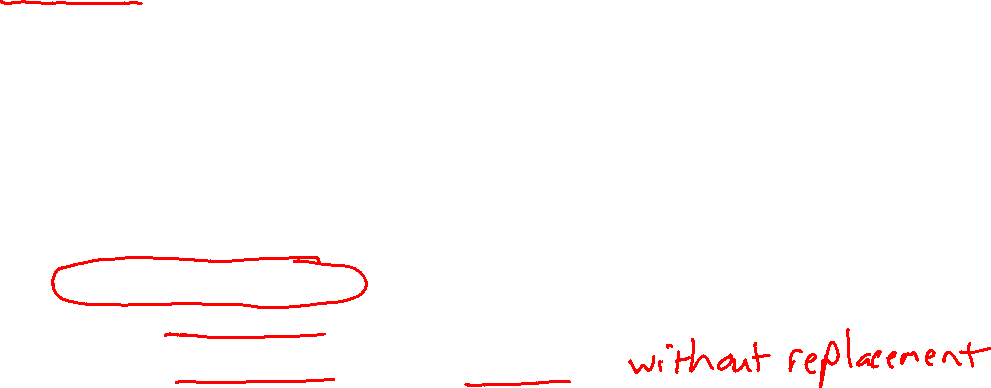 without replacement